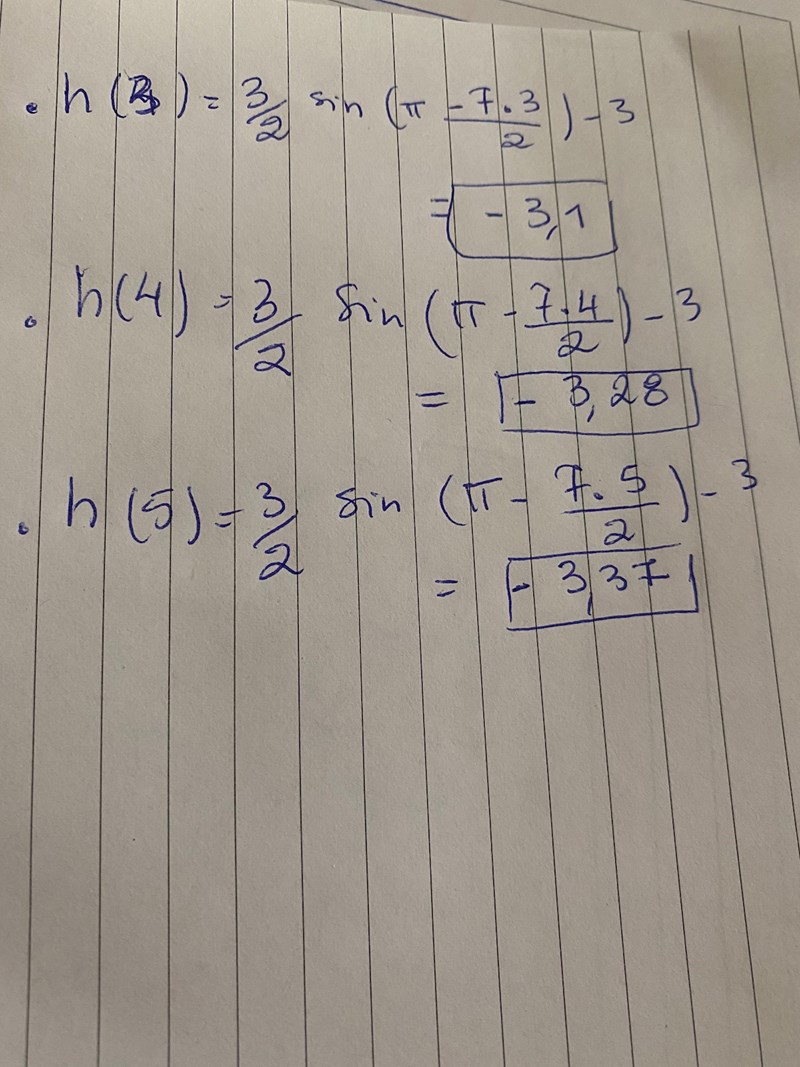 . h(3) = 3/2 sin (π -7.3/2) - 3
= - 3,1
. h(4) = 3/2 sin (π - 7.4/2) - 3
= - 3,28
. h(5) = 3/2 sin (π - 7.5/2) - 3
= - 3,37